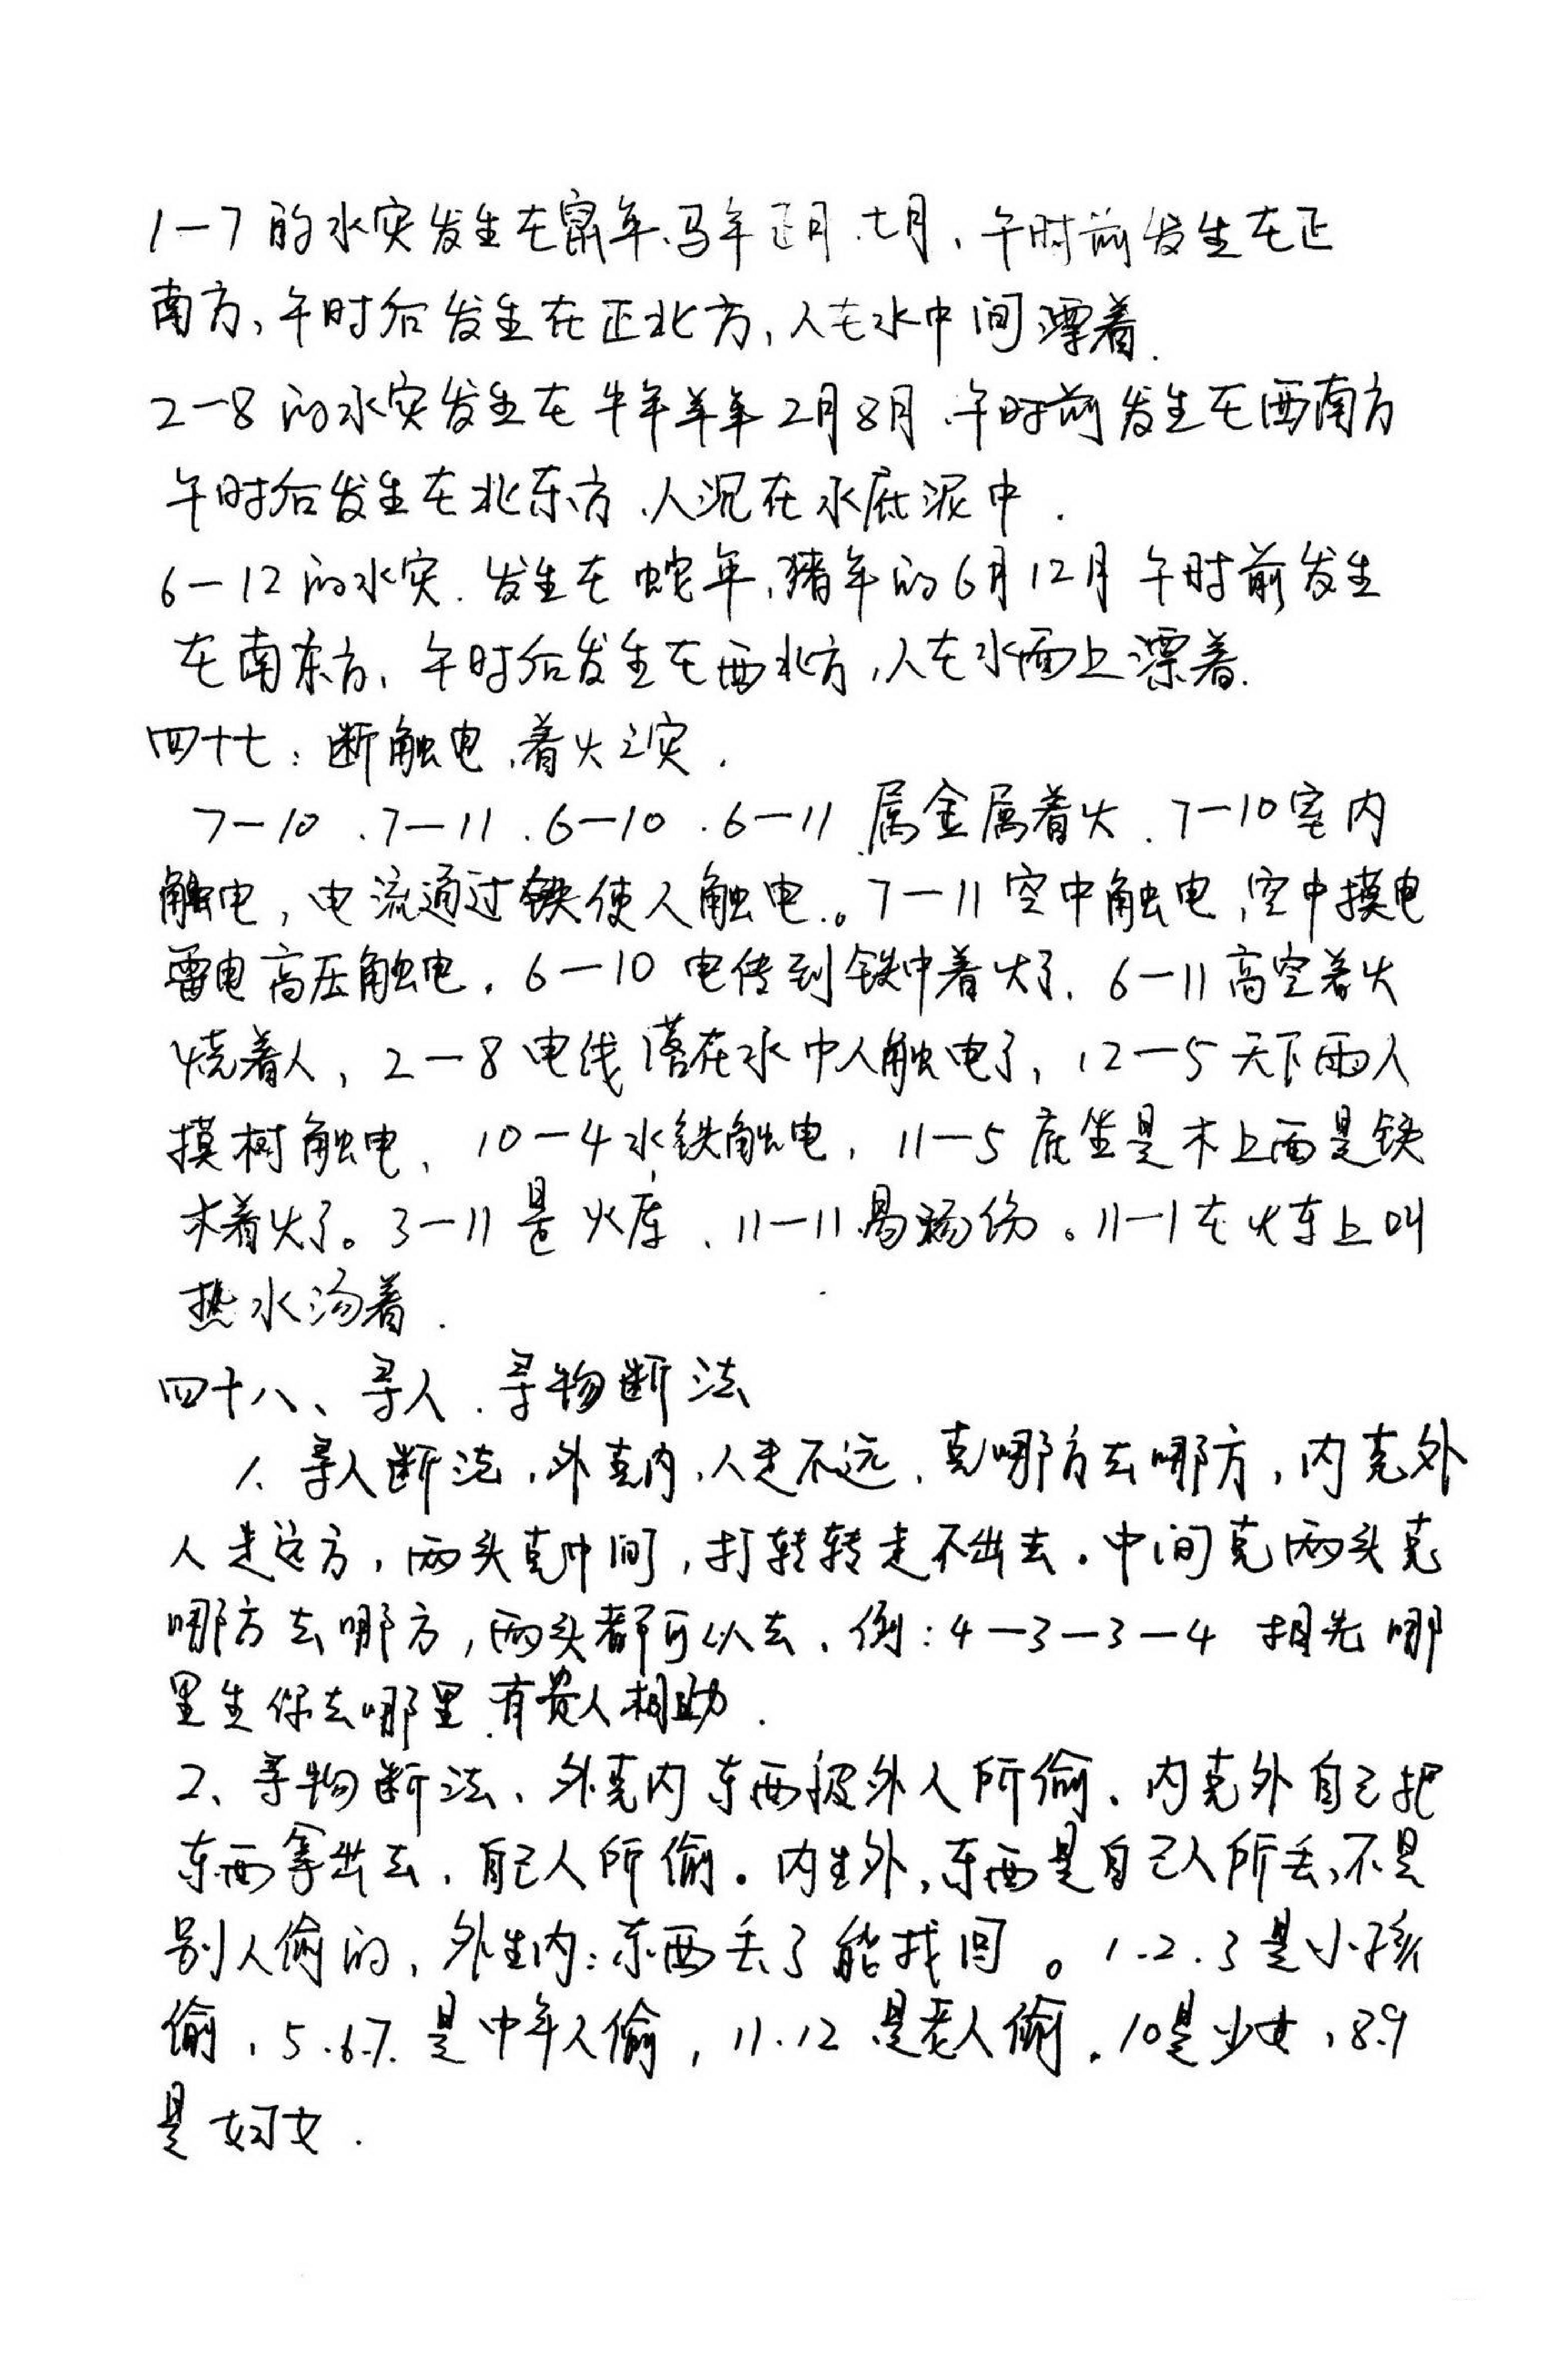 1一7的水灾发生在鼠年、马年正月.七月、午时前发生在正
南方,午时后发生在正北方,人在水中间漂着.
2一8的水灾发生在牛年羊年2月8月、午时前发生在西南方
午时后发生在北东方、人沉在水底泥中.
6一12的水灾.发生在蛇年,猪年的6月12月午时前发生
在南东方、午时后发生在西北方,人在水面上漂着.
四十七:断触电、着火之灾.
7一10、7一11、6一10.6一11属金属着火.7一10室内
触电,电流通过铁使人触电.。7一11空中触电,空中摸电
雷电高压触电.6一10电传到铁中着火了、6一11高空着火
烧着人,2一8电线落在水中人触电了,12一5天下雨人
摸树触电、10一4水铁触电,11一5底坐是木上面是铁
木着火了。3一11是火库、11一11易汤伤。11一1在火车上叫
热水汤着.
四十八、寻人.寻物断法
1.寻人断法,外克内,人走不远、克哪方去哪方,内克外
人走远方,两头克中间,打转转走不出去.中间克两头克
哪方去哪方,两头都可以去、例:4一3一3一4 相先哪
里生你去哪里.有贵人相助.
2、寻物断法、外克内东西被外人所偷、内克外自己把
东西拿出去,自己人所偷.内生外,东西是自己人所丢,不是
别人偷的,外生内:东西丢了能找回。1.2.3是小孩
偷,5.6.7.是中年人偷,11.12是老人偷.10是少女,8.9
是妇女.